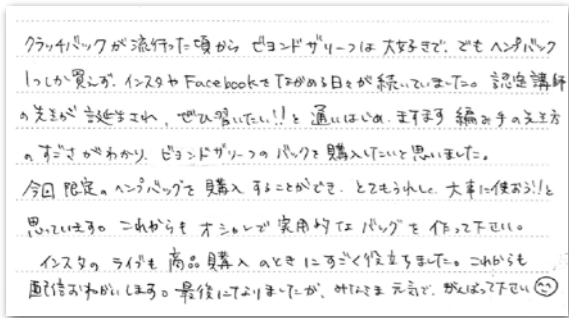 クラッチバックが流行った頃からビヨンドザリーフは大好きで、でもヘンプバック
1つしか買えず、インスタやFacebookをながめる日々が続いていました。認定講師
の先生が誕生され、ぜひ習いたい!!と通いはじめ、ますます編み手の先生方
のすごさがわかり、ビヨンドザリーフのバックを購入したいと思いました。
今回限定のヘンプバッグを購入することができ、とてもうれしく、大事に使おう!!と
思っています。これからもオシャレで実用的なバッグを作って下さい。
インスタのライブも商品購入のときにすごく役立ちました。これからも
配信おねがいします。最後になりましたが、みなさま元気で、がんばって下さい